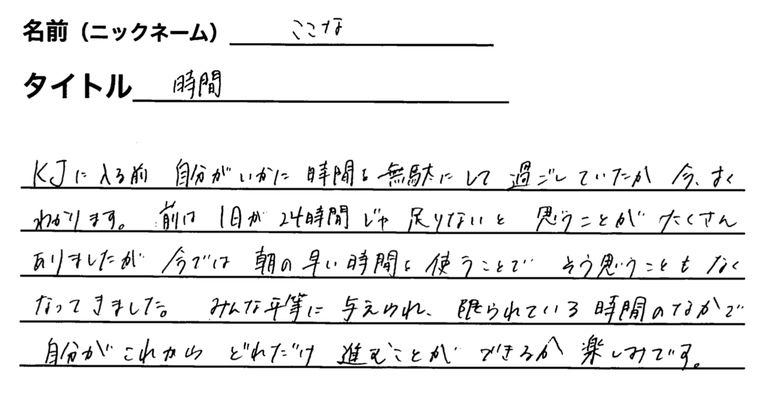 名前（ニックネーム） ここな
タイトル 時間
KJに入る前 自分がいかに時間を無駄にして過ごしていたか 今、よく
わかります。前は1日が24時間じゃ足りないと思うことがたくさん
ありましたが 今では朝の早い時間を使うことで そう思うことも なく
なってきました。 みんな平等に与えられ、限られている時間のなかで
自分がこれから どれだけ進むことが できるか 楽しみです。